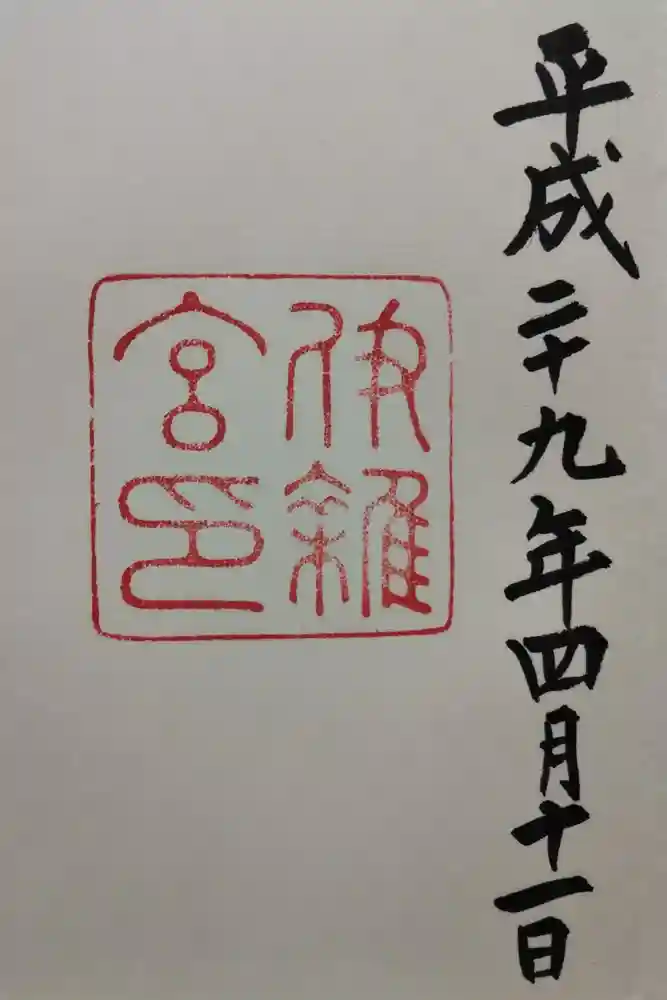 平成二十九年四月十一日
伊雑宮印